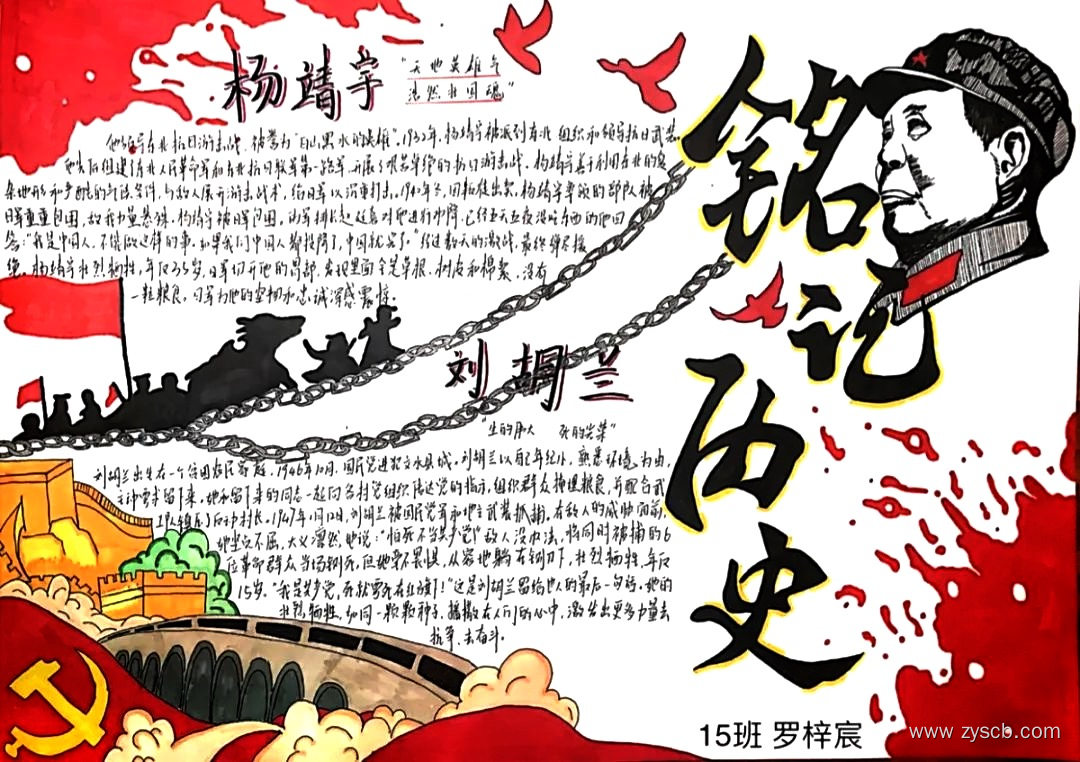 杨靖宇
"天地英雄气
浩然壮国魂"
他领导东北抗日游击战，被誉为"白山黑水的英雄"。1932年，杨靖宇被派到东北组织和领导抗日武装。
他先后组建了东北人民革命军和东北抗日联军第一路军，开展了艰苦卓绝的抗日游击战。杨靖宇善于利用东北的复
杂地形和严酷的气候条件，与敌人展开游击战术，给日军以沉重打击。1940年冬，因叛徒出卖，杨靖宇率领的部队被
日军重重包围，敌我力量悬殊，杨靖宇被日军包围，已经五天五夜没吃东西的他回
答："我是中国人，不能做这样的事。如果我们中国人都投降了，中国就完了。"经过数天的激战，最终弹尽粮
绝，杨靖宇壮烈牺牲，年仅35岁。日军切开他的胃部，发现里面全是草根、树皮和棉絮，没有
一粒粮食。日军为他的坚韧和忠诚深感震惊。
刘胡兰
"生的伟大 死的光荣"
刘胡兰出生在一个贫困农民家庭。1946年10月，国民党进犯文水县城。刘胡兰以自己年纪小，熟悉环境为由，
主动要求留下来。她和留下来的同志一起向各村党组织传达党的指示，组织群众掩埋粮食，并配合武
工队镇压了反动村长。1947年1月12日，刘胡兰被国民党军和地主武装抓捕。在敌人的威胁面前，
她坚贞不屈，大义凛然，她说："怕死不当共产党！"敌人没办法，将同时被捕的6
位革命群众当场铡死。但她毫不畏惧，从容地躺在铡刀下，壮烈牺牲，年仅
15岁。"我是共产党，死就要死在红旗下！"这是刘胡兰留给世人的最后一句话。她的
壮烈牺牲，如同一颗颗种子，播撒在人们的心中，激发出更多力量去
抗争、去奋斗。
铭记历史
15班 罗梓宸
www.zyscb.com